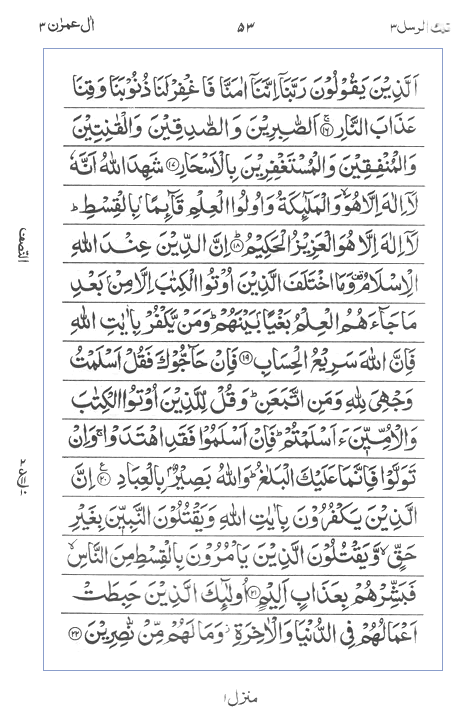 تلك الرسل ٣ ٥٣ اٰل عمرٰن ٣
اَلَّذِيْنَ يَقُوْلُوْنَ رَبَّنَآ اِنَّنَآ اٰمَنَّا فَاغْفِرْ لَنَا ذُنُوْبَنَا وَقِنَا
عَذَابَ النَّارِ ﴿۱۶﴾ اَلصّٰبِرِيْنَ وَالصّٰدِقِيْنَ وَالْقٰنِتِيْنَ
وَالْمُنْفِقِيْنَ وَالْمُسْتَغْفِرِيْنَ بِالْاَسْحَارِ ﴿۱۷﴾ شَهِدَ اللّٰهُ اَنَّهٗ
لَآ اِلٰهَ اِلَّا هُوَ ۙ وَالْمَلٰٓئِكَةُ وَاُولُوا الْعِلْمِ قَآئِمًۢا بِالْقِسْطِ ؕ
لَآ اِلٰهَ اِلَّا هُوَ الْعَزِيْزُ الْحَكِيْمُ ﴿۱۸﴾ اِنَّ الدِّيْنَ عِنْدَ اللّٰهِ
الْاِسْلَامُ ۟ وَمَا اخْتَلَفَ الَّذِيْنَ اُوْتُوا الْكِتٰبَ اِلَّا مِنْۢ بَعْدِ
مَا جَآءَهُمُ الْعِلْمُ بَغْيًۢا بَيْنَهُمْ ؕ وَمَنْ يَّكْفُرْ بِاٰيٰتِ اللّٰهِ
فَاِنَّ اللّٰهَ سَرِيْعُ الْحِسَابِ ﴿۱۹﴾ فَاِنْ حَآجُّوْكَ فَقُلْ اَسْلَمْتُ
وَجْهِيَ لِلّٰهِ وَمَنِ اتَّبَعَنِ ؕ وَقُلْ لِّلَّذِيْنَ اُوْتُوا الْكِتٰبَ
وَالْاُمِّيّٖنَ ءَاَسْلَمْتُمْ ؕ فَاِنْ اَسْلَمُوْا فَقَدِ اهْتَدَوْا ۚ وَاِنْ
تَوَلَّوْا فَاِنَّمَا عَلَيْكَ الْبَلٰغُ ؕ وَاللّٰهُ بَصِيْرٌۢ بِالْعِبَادِ ﴿۲۰﴾ اِنَّ
الَّذِيْنَ يَكْفُرُوْنَ بِاٰيٰتِ اللّٰهِ وَيَقْتُلُوْنَ النَّبِيّٖنَ بِغَيْرِ
حَقٍّ ۙ وَّيَقْتُلُوْنَ الَّذِيْنَ يَاْمُرُوْنَ بِالْقِسْطِ مِنَ النَّاسِ ۙ
فَبَشِّرْهُمْ بِعَذَابٍ اَلِيْمٍ ﴿۲۱﴾ اُولٰٓئِكَ الَّذِيْنَ حَبِطَتْ
اَعْمَالُهُمْ فِي الدُّنْيَا وَالْاٰخِرَةِ ؗ وَمَا لَهُمْ مِّنْ نّٰصِرِيْنَ ﴿۲۲﴾
النصف
منزل ١